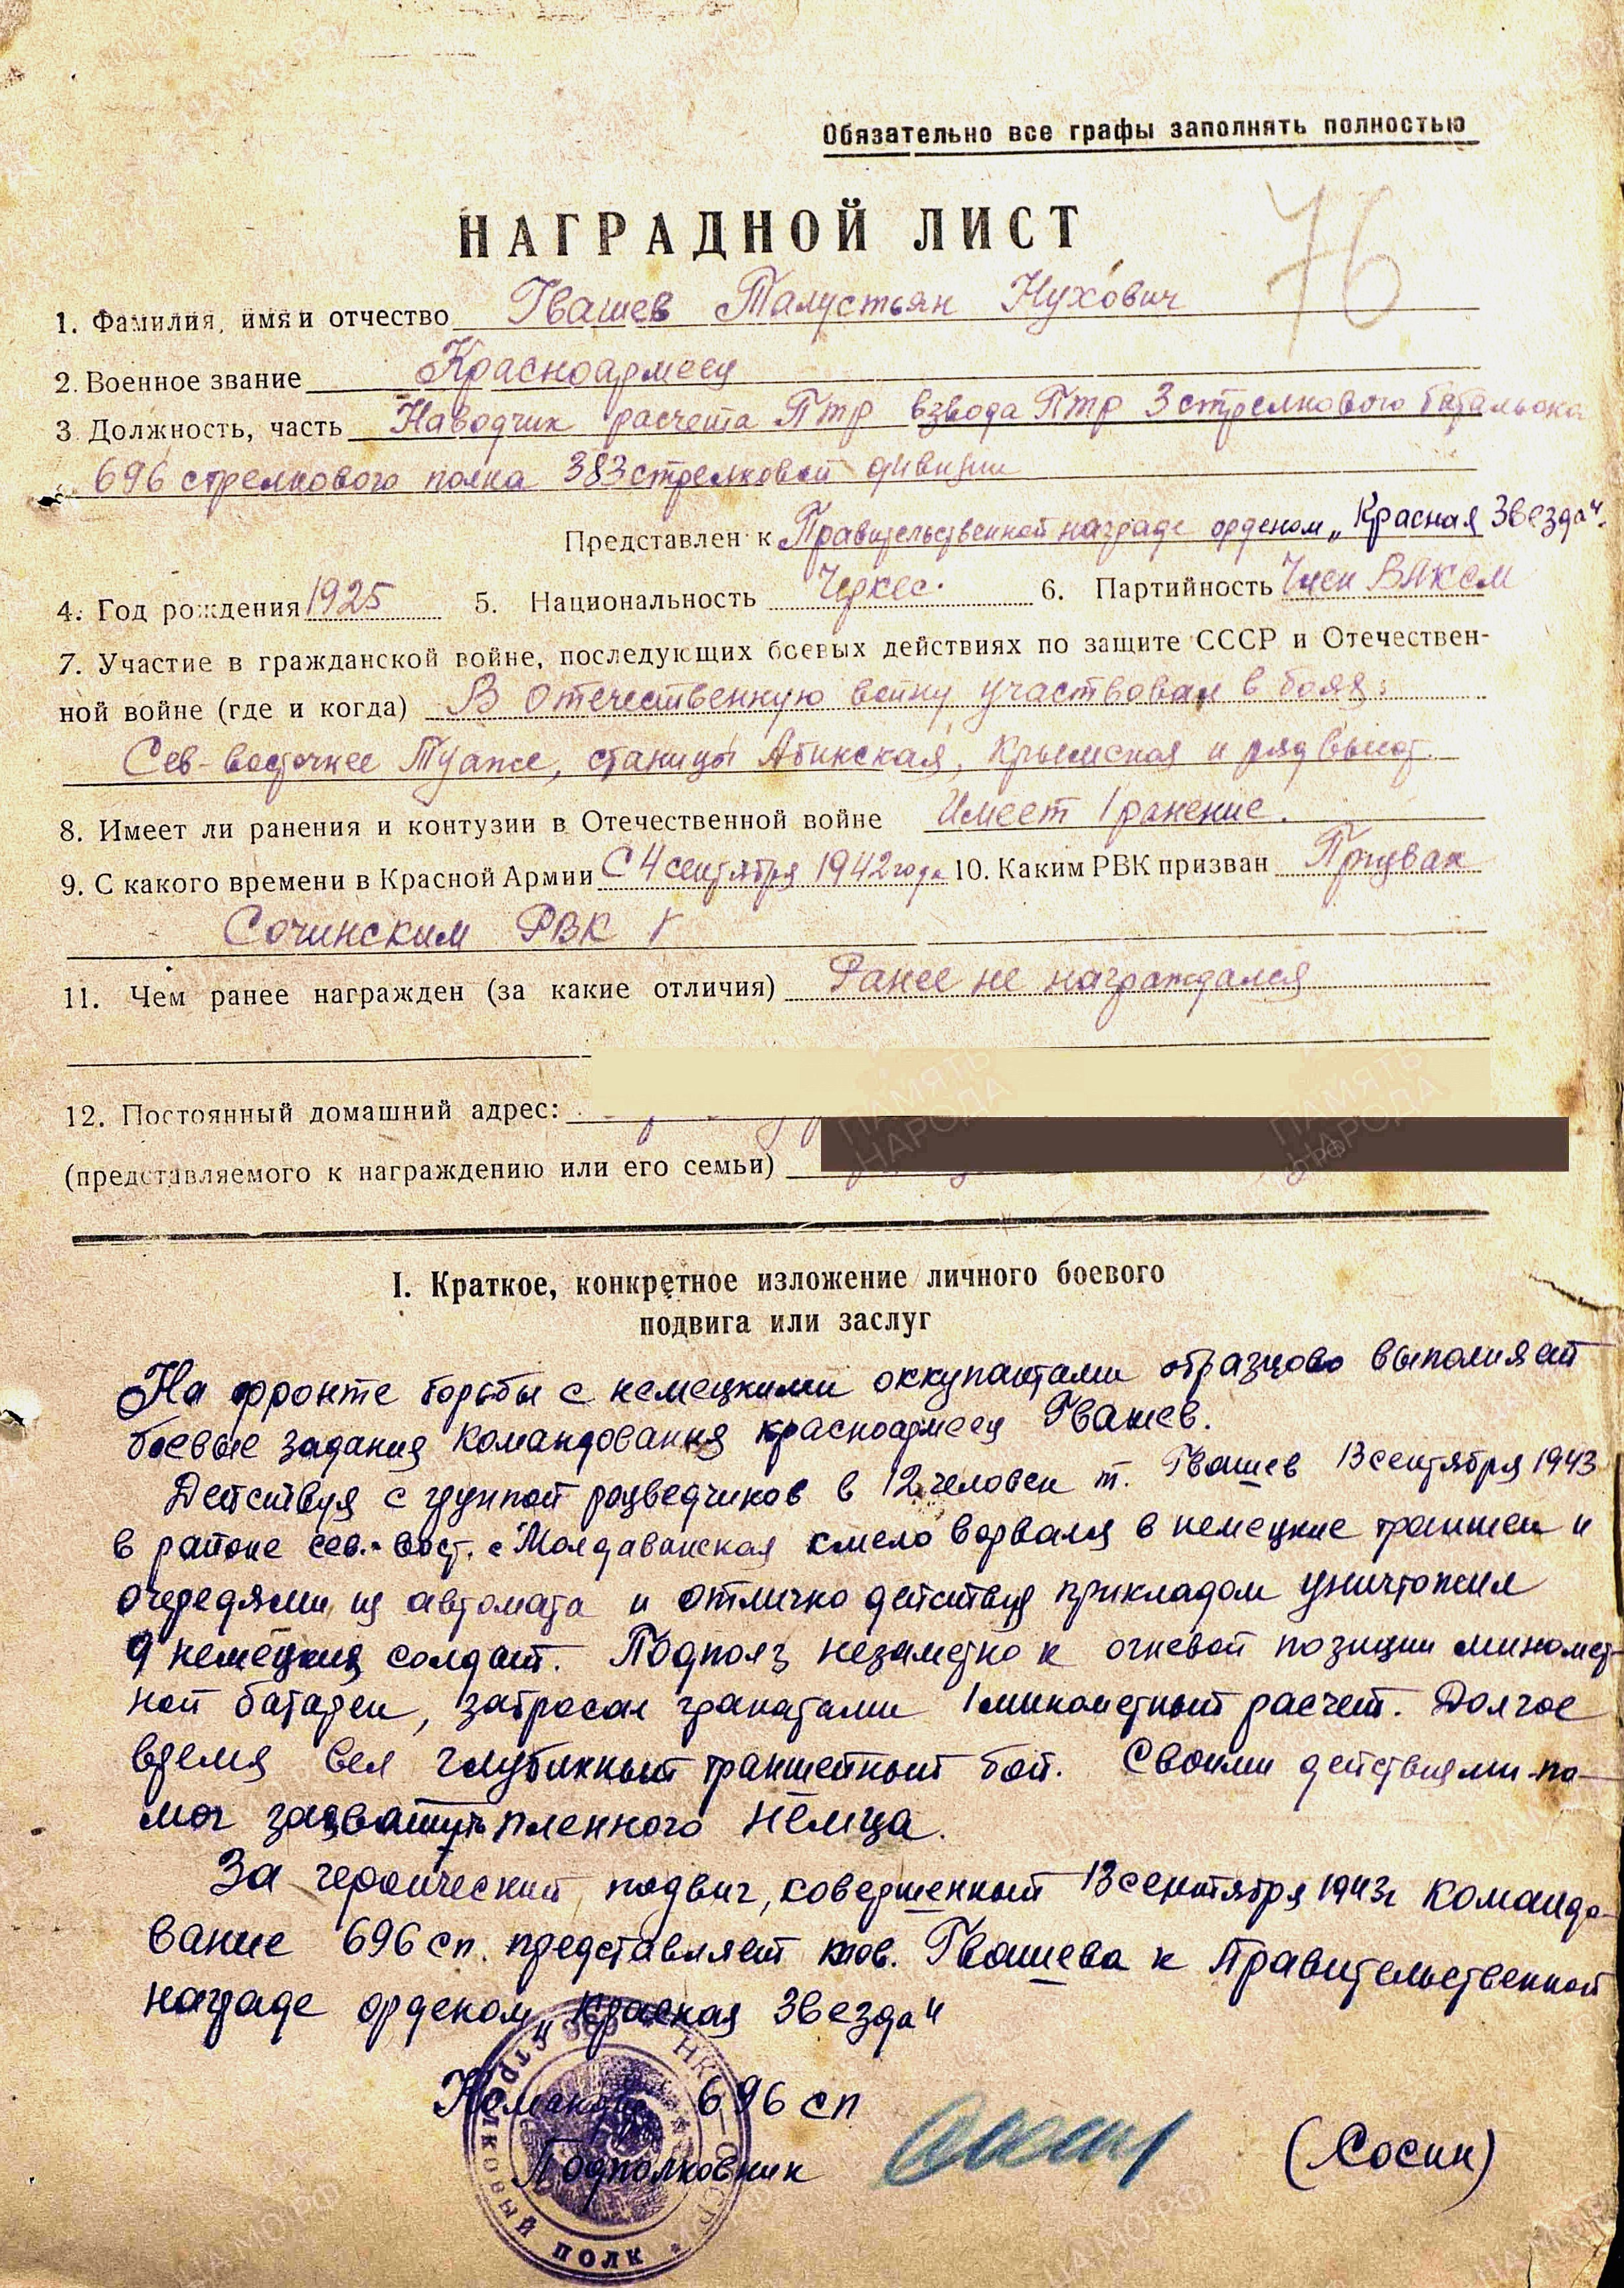 Обязательно все графы заполнять полностью
76
НАГРАДНОЙ ЛИСТ
1. Фамилия, имя и отчество Гвашев Талустьян Нухович
2. Военное звание Красноармеец
3. Должность, часть Наводчик расчета ПТР взвода ПТР 3 стрелкового батальона
696 стрелкового полка 383 стрелковой дивизии
Представлен к Правительственной награде орденом „Красная Звезда"
4. Год рождения 1925 5. Национальность Черкес. 6. Партийность Член ВЛКСМ
7. Участие в гражданской войне, последующих боевых действиях по защите СССР и Отечествен-
ной войне (где и когда) В Отечественную войну участвовал в боях:
Сев-восточнее Туапсе, станицы Абинская, Крымская и ряд высот.
8. Имеет ли ранения и контузии в Отечественной войне Имеет 1 ранение.
9. С какого времени в Красной Армии С 4 сентября 1942 года 10. Каким РВК призван Призван
Сочинским РВК
11. Чем ранее награжден (за какие отличия) Ранее не награждался
12. Постоянный домашний адрес:
(представляемого к награждению или его семьи)
I. Краткое, конкретное изложение личного боевого
подвига или заслуг
На фронте борьбы с немецкими оккупантами образцово выполняет
боевые задания командования красноармеец Гвашев.
Действуя с группой разведчиков в 12 человек т. Гвашев 13 сентября 1943
в районе сев.-вост. с Молдаванская смело ворвался в немецкие траншеи и
очередями из автомата и отлично действуя прикладом уничтожил
9 немецких солдат. Подполз незаметно к огневой позиции миномет-
ной батареи, забросал гранатами 1 минометный расчет. Долгое
время вел глубинный траншейный бой. Своими действиями по-
мог захватить пленного немца.
За героический подвиг, совершенный 13 сентября 1943г командо-
вание 696 сп. представляет тов. Гвашева к Правительственной
награде орденом „Красная Звезда"
Командир 696 сп
Подполковник (Сосин)
СТРЕЛКОВЫЙ ПОЛК * 696 НКО-СССР
ПАМЯТЬ НАРОДА
ПАМЯТЬ НАРОДА
ЦАМО РФ